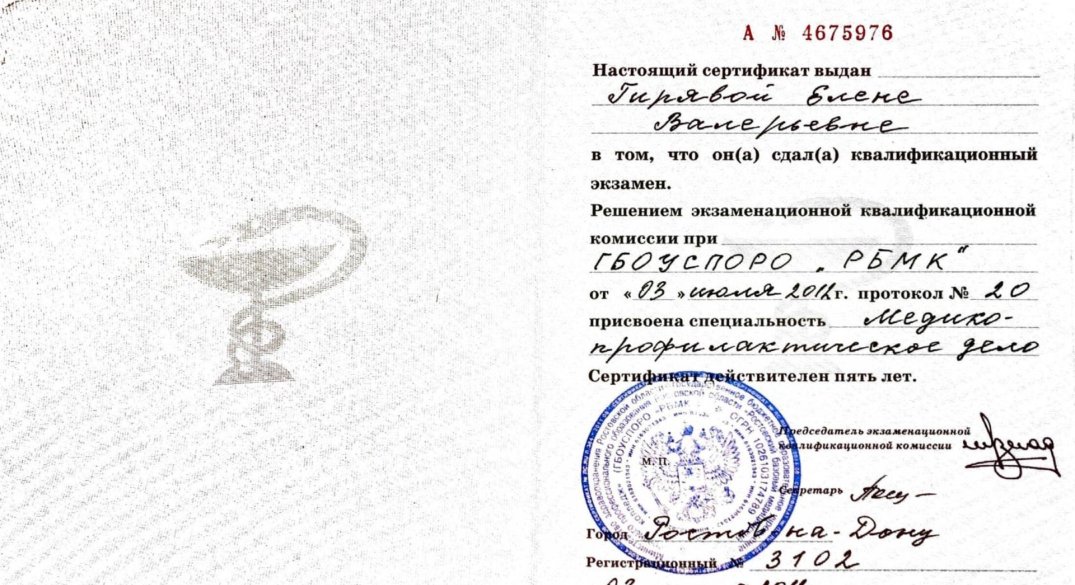 А № 4675976
Настоящий сертификат выдан
Гирявой Елене
Валерьевне
в том, что он(а) сдал(а) квалификационный
экзамен.
Решением экзаменационной квалификационной
комиссии при
ГБОУСПОРО „РБМК"
от «03» июля 2012 г. протокол № 20
присвоена специальность Медико-
профилактическое дело
Сертификат действителен пять лет.
Председатель экзаменационной
квалификационной комиссии
М. П.
Секретарь
Город Ростов на-Дону
Регистрационный № 3102